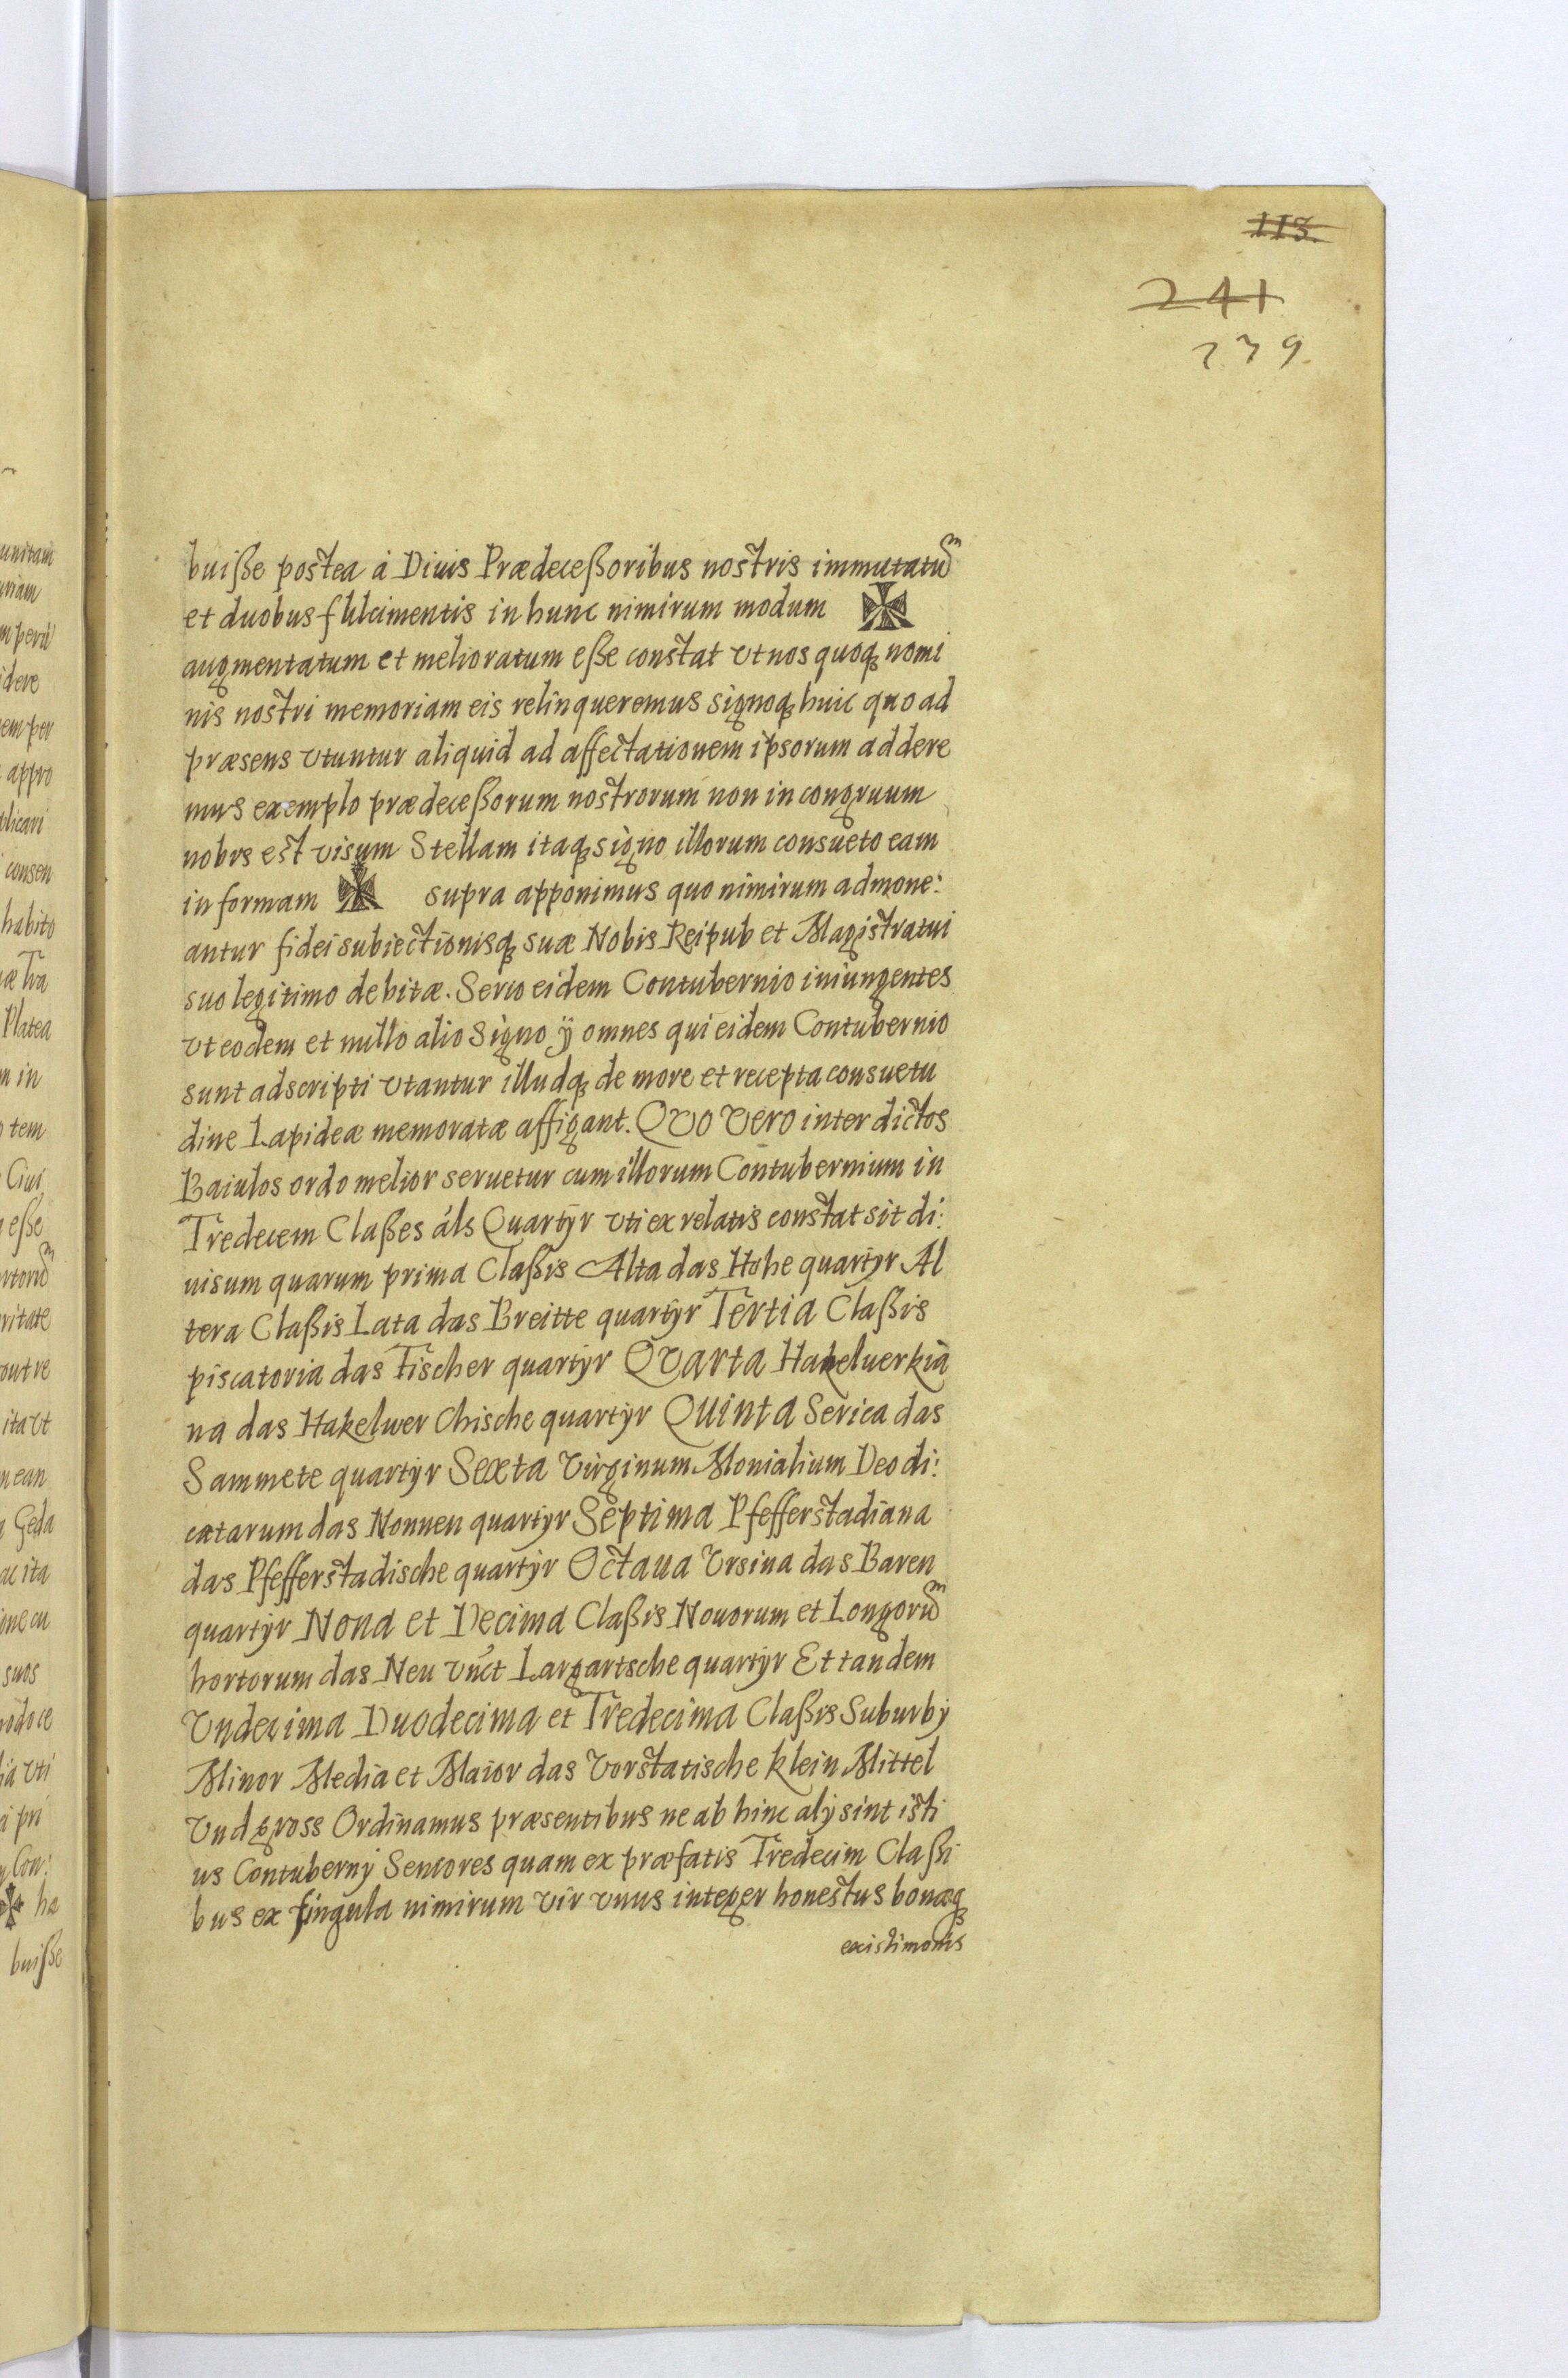 113.
241
239
buiße postea á Diuis Prædeceßoribus nostris immutatu͠m
et duobus fulcimentis in hunc nimirum modum ✠
augmentatum et melioratum eße constat vt nos quoq; nomi
nis nostri memoriam eis relinqueremus signoq; huic quo ad
præsens vtuntur aliquid ad affectationem ipsorum addere
mus exemplo prædeceßorum nostrorum non incongruum
nobis est visum Stellam itaq; signo illorum consueto eam
in formam supra apponimus quo nimirum admone:
antur fidei subiectionisq; suæ Nobis Reipub et Magistratui
suo legitimo debitæ. Serio eidem Contubernio iniungentes
vt eodem et nullo alio Signo ÿ omnes qui eidem Contubernio
sunt adscripti vtantur illudq; de more et recepta consuetu
dine Lapideæ memoratæ affigant. Qvo Vero inter dictos
Baiulos ordo melior seruetur cum illorum Contubernium in
Tredecem Claßes áls Quartÿr vti ex relatis constat sit di:
uisum quarum prima Claßis Alta das Hohe quartÿr Al
tera Claßis Lata das Breitte quartÿr Tertia Claßis
piscatoria das Fischer quartÿr Qvarta Hakeluerkia
na das Hakelwer Chische quartÿr Quinta Serica das
Sammete quartÿr Sexta Virginum Monialium Deo di:
catarum das Nonnen quartyr Septima Pfefferstadiana
das Pfefferstadische quartÿr Octaua Vrsina das Baren
quartÿr Nona et Decima Claßis Nouorum et Longoru͠m
hortorum das Neu vnct Largartsche quartÿr Et tandem
Vndecima Duodecima et Tredecima Claßis Suburbÿ
Minor Media et Maior das Vorstatische klein Mittel
Vnd gross Ordinamus præsentibus ne ab hinc alÿ sint isti
us Contubernÿ Seniores quam ex præfatis Tredecim Claßi
bus ex singula nimirum vir vnus integer honestus bonæq;
existimonis